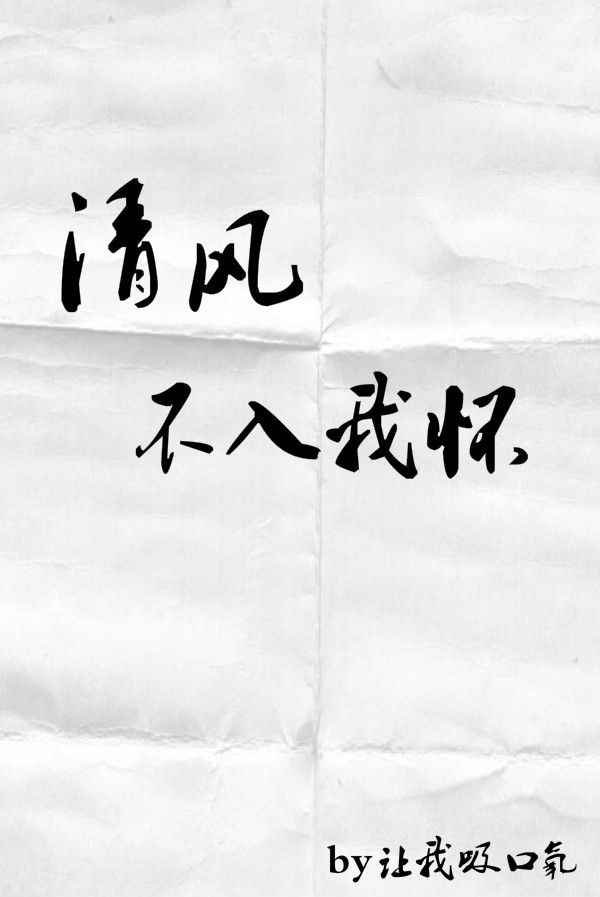 清风
不入我怀
by让我吸口氧